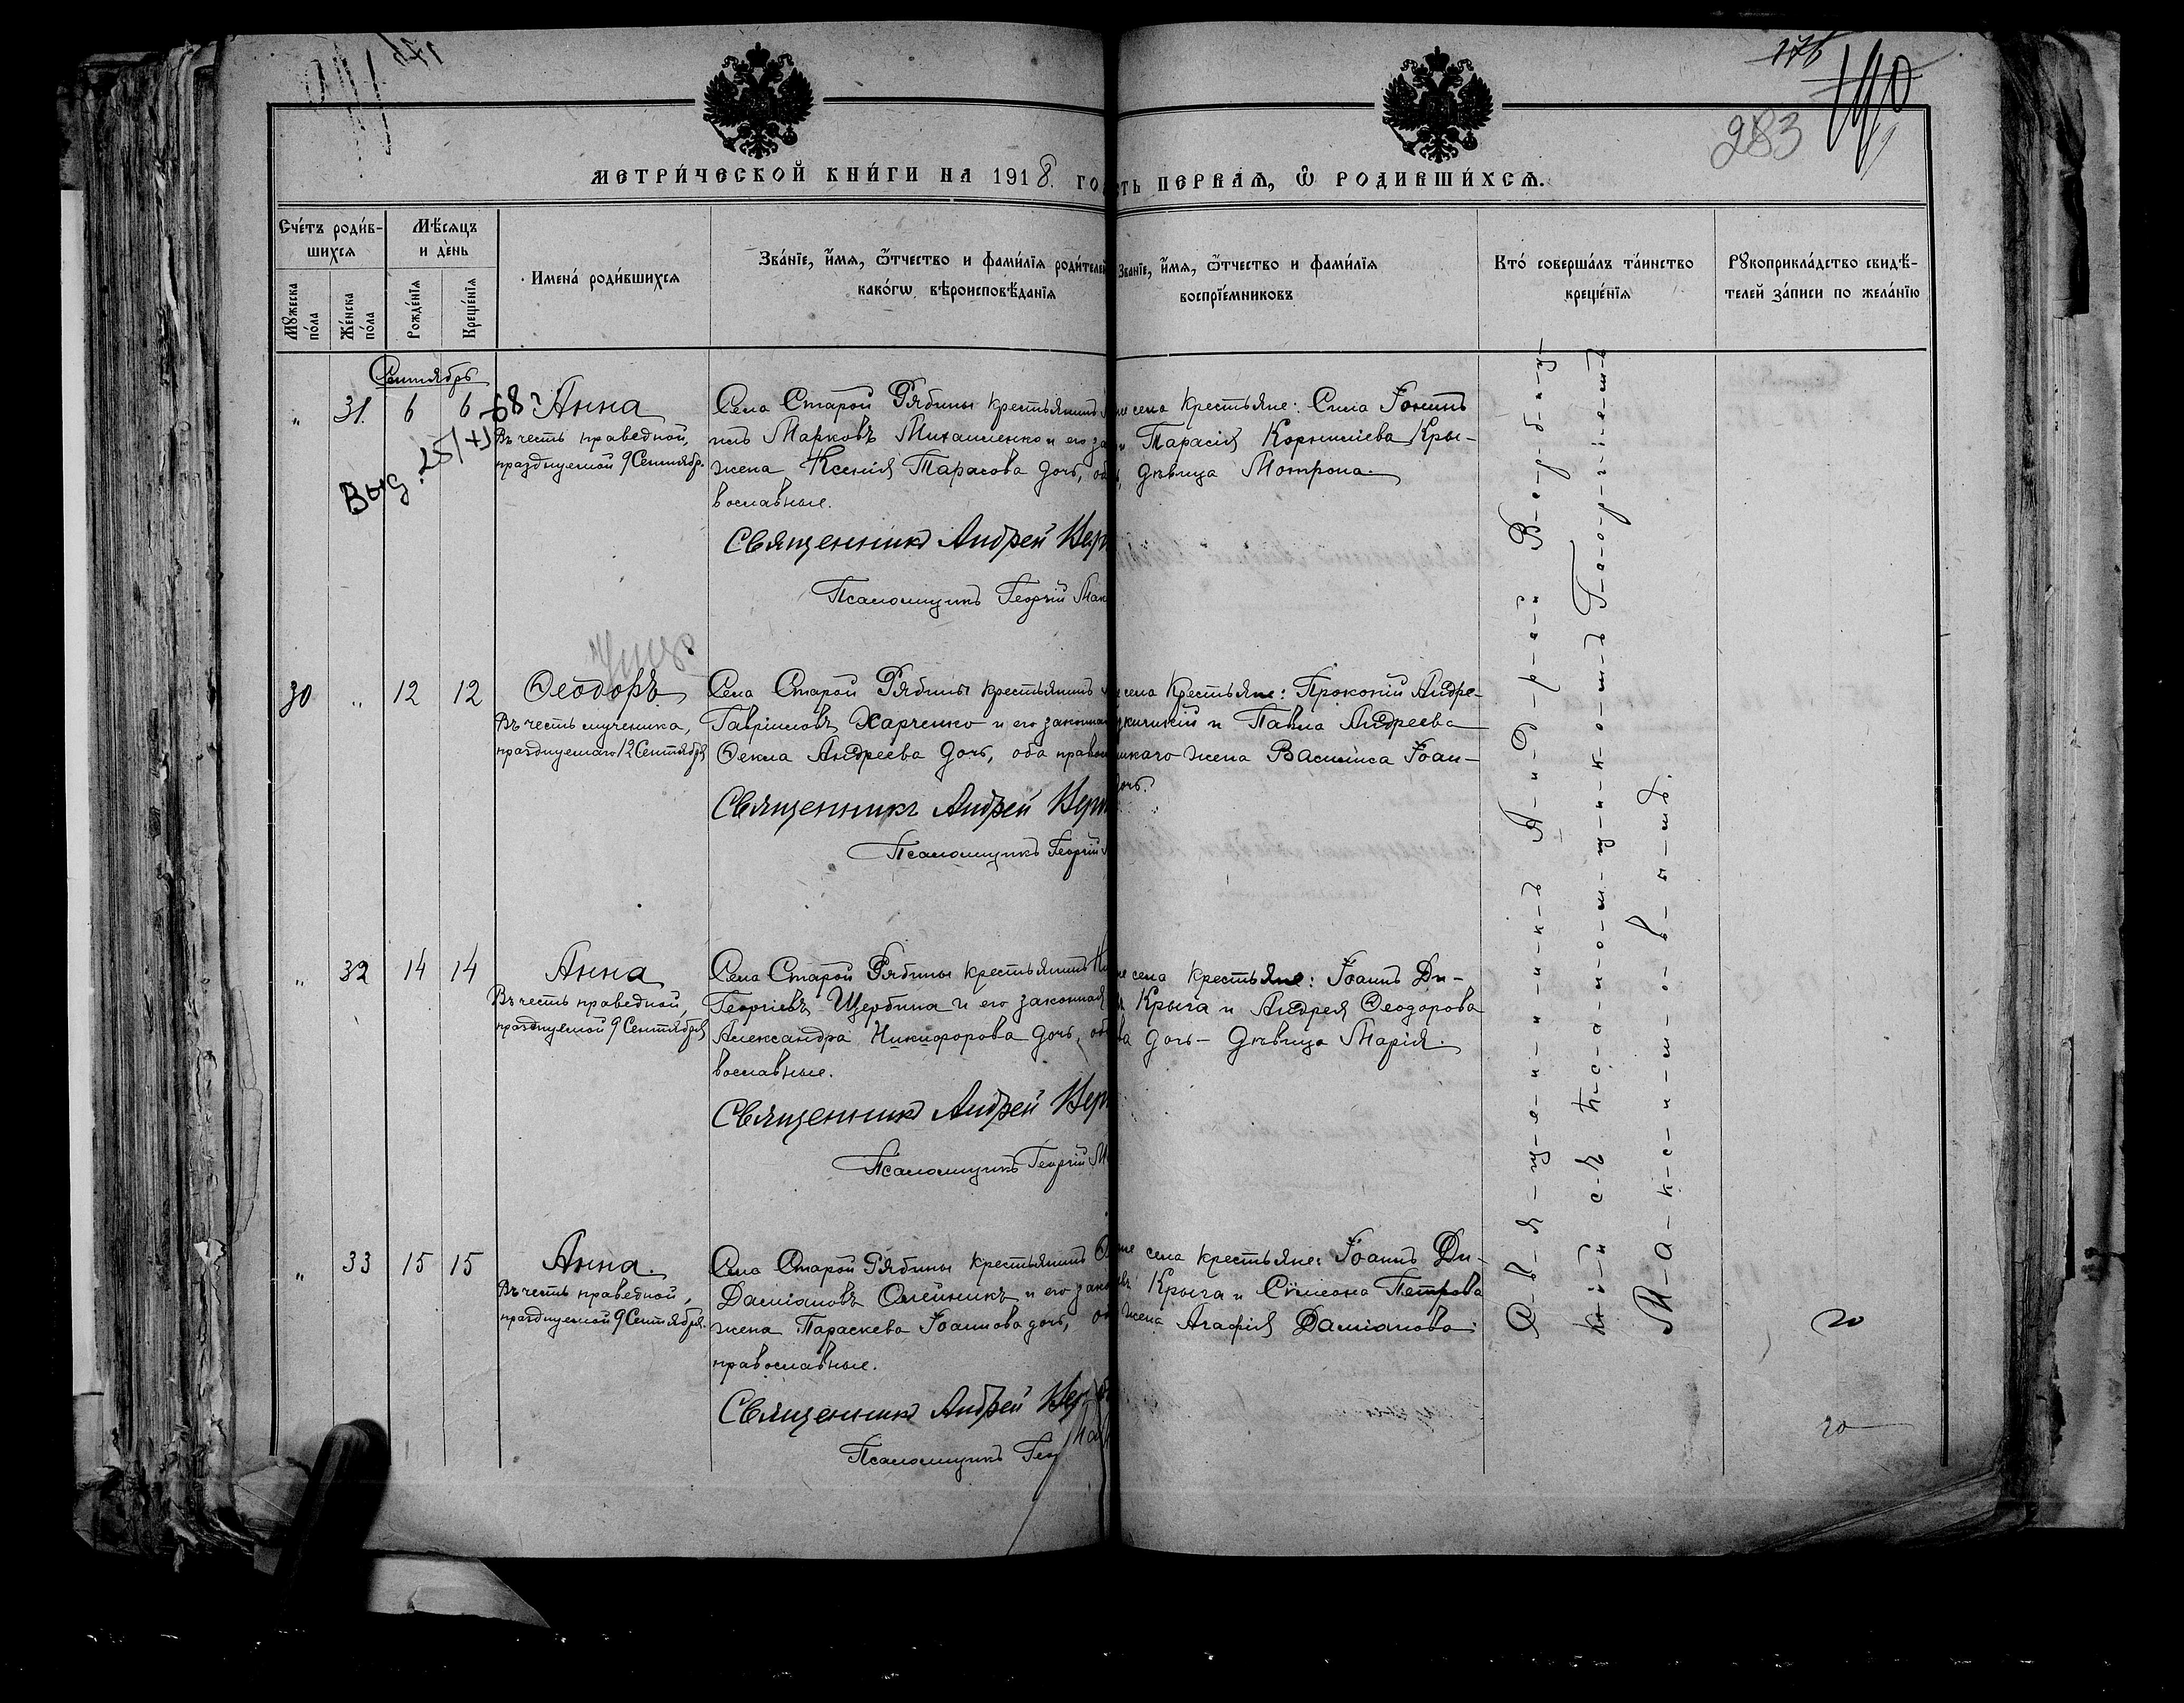 176
190
283
МЕТРИ́ЧЕСКОЙ КНИ́ГИ НА 1918. ГО
ТЬ ПЕРВАѦ, Ѡ РОДИВШИ́ХСѦ.
Сче́тъ роди́в-
шихсѧ
Мѣ́сѧцъ
и де́нь
Мꙋ́жеска по́ла
Же́нска по́ла
Рожде́нїѧ
Креще́нїѧ
Имена́ роди́вшихсѧ
Зва́нїе, и́мѧ, ѻ́тчество и фами́лїѧ роди́телей
како́гѡ вѣроисповѣ́данїѧ
Зва́нїе, и́мѧ, ѻ́тчество и фами́лїѧ
воспрїе́мниковъ
Кто́ соверша́лъ та́инство
креще́нїѧ
Рꙋкоприкла́дство свидѣ́-
телей за́писи по жела́нїю
Сентябрь
" 31. 6 6 Анна
Въ честь праведной,
празднуемой 9 Сентябр.
Выд. 25/XI
Села Старой Рябины крестьянинъ
Марковъ Михайленко и его за
жена Ксенія Тарасова дочь, об
вославные.
Священникъ Андрей Вер
Псаломщикъ Георгій Мак
села крестьяне: Сила Іонинъ
Тарасія Корниліева Кры-
дѣвица Мотрона.
30 " 12 12 Ѳеодоръ
Въ честь мученика,
празднуемаго 12 Сентября
Села Старой Рябины крестьянинъ
Гавріиловъ Харченко и его законная
Ѳекла Андреева дочь, оба правос
Священникъ Андрей Вер
Псаломщикъ Георгій
села крестьяне: Прокопій Андре-
и Павла Андреева
жена Василиса Іоан-
дочь.
" 32 14 14 Анна
Въ честь праведной,
празднуемой 9 Сентября
Села Старой Рябины крестьянинъ
Георгіевъ Щербина и его законная
Александра Никифорова дочь, об
вославные.
Священникъ Андрей Вер
Псаломщикъ Георгій М
села крестьяне: Іоаннъ Ди-
Крыга и Андрея Ѳеодорова
ва дочь - дѣвица Марія.
" 33 15 15 Анна.
Въ честь праведной,
празднуемой 9 Сентября.
Села Старой Рябины крестьянинъ
Даміановъ Олейникъ и его зако
жена Параскева Іоаннова дочь, об
православные.
Священникъ Андрей Вер
Псаломщикъ Гео
села крестьяне: Іоаннъ Ди-
Крыга и Сѵмеона Петрова
жена Агафія Даміанова.
С-в-я-щ-е-н-н-и-к-ъ А-н-д-р-е-й В-е-р-б-и-ц-
кі-й с-ъ п-с-а-л-о-м-щ-и-к-о-м-ъ Г-е-о-р-г-і-е-м-ъ
М-а-к-с-и-м-о-в-ы-м-ъ.
20
20